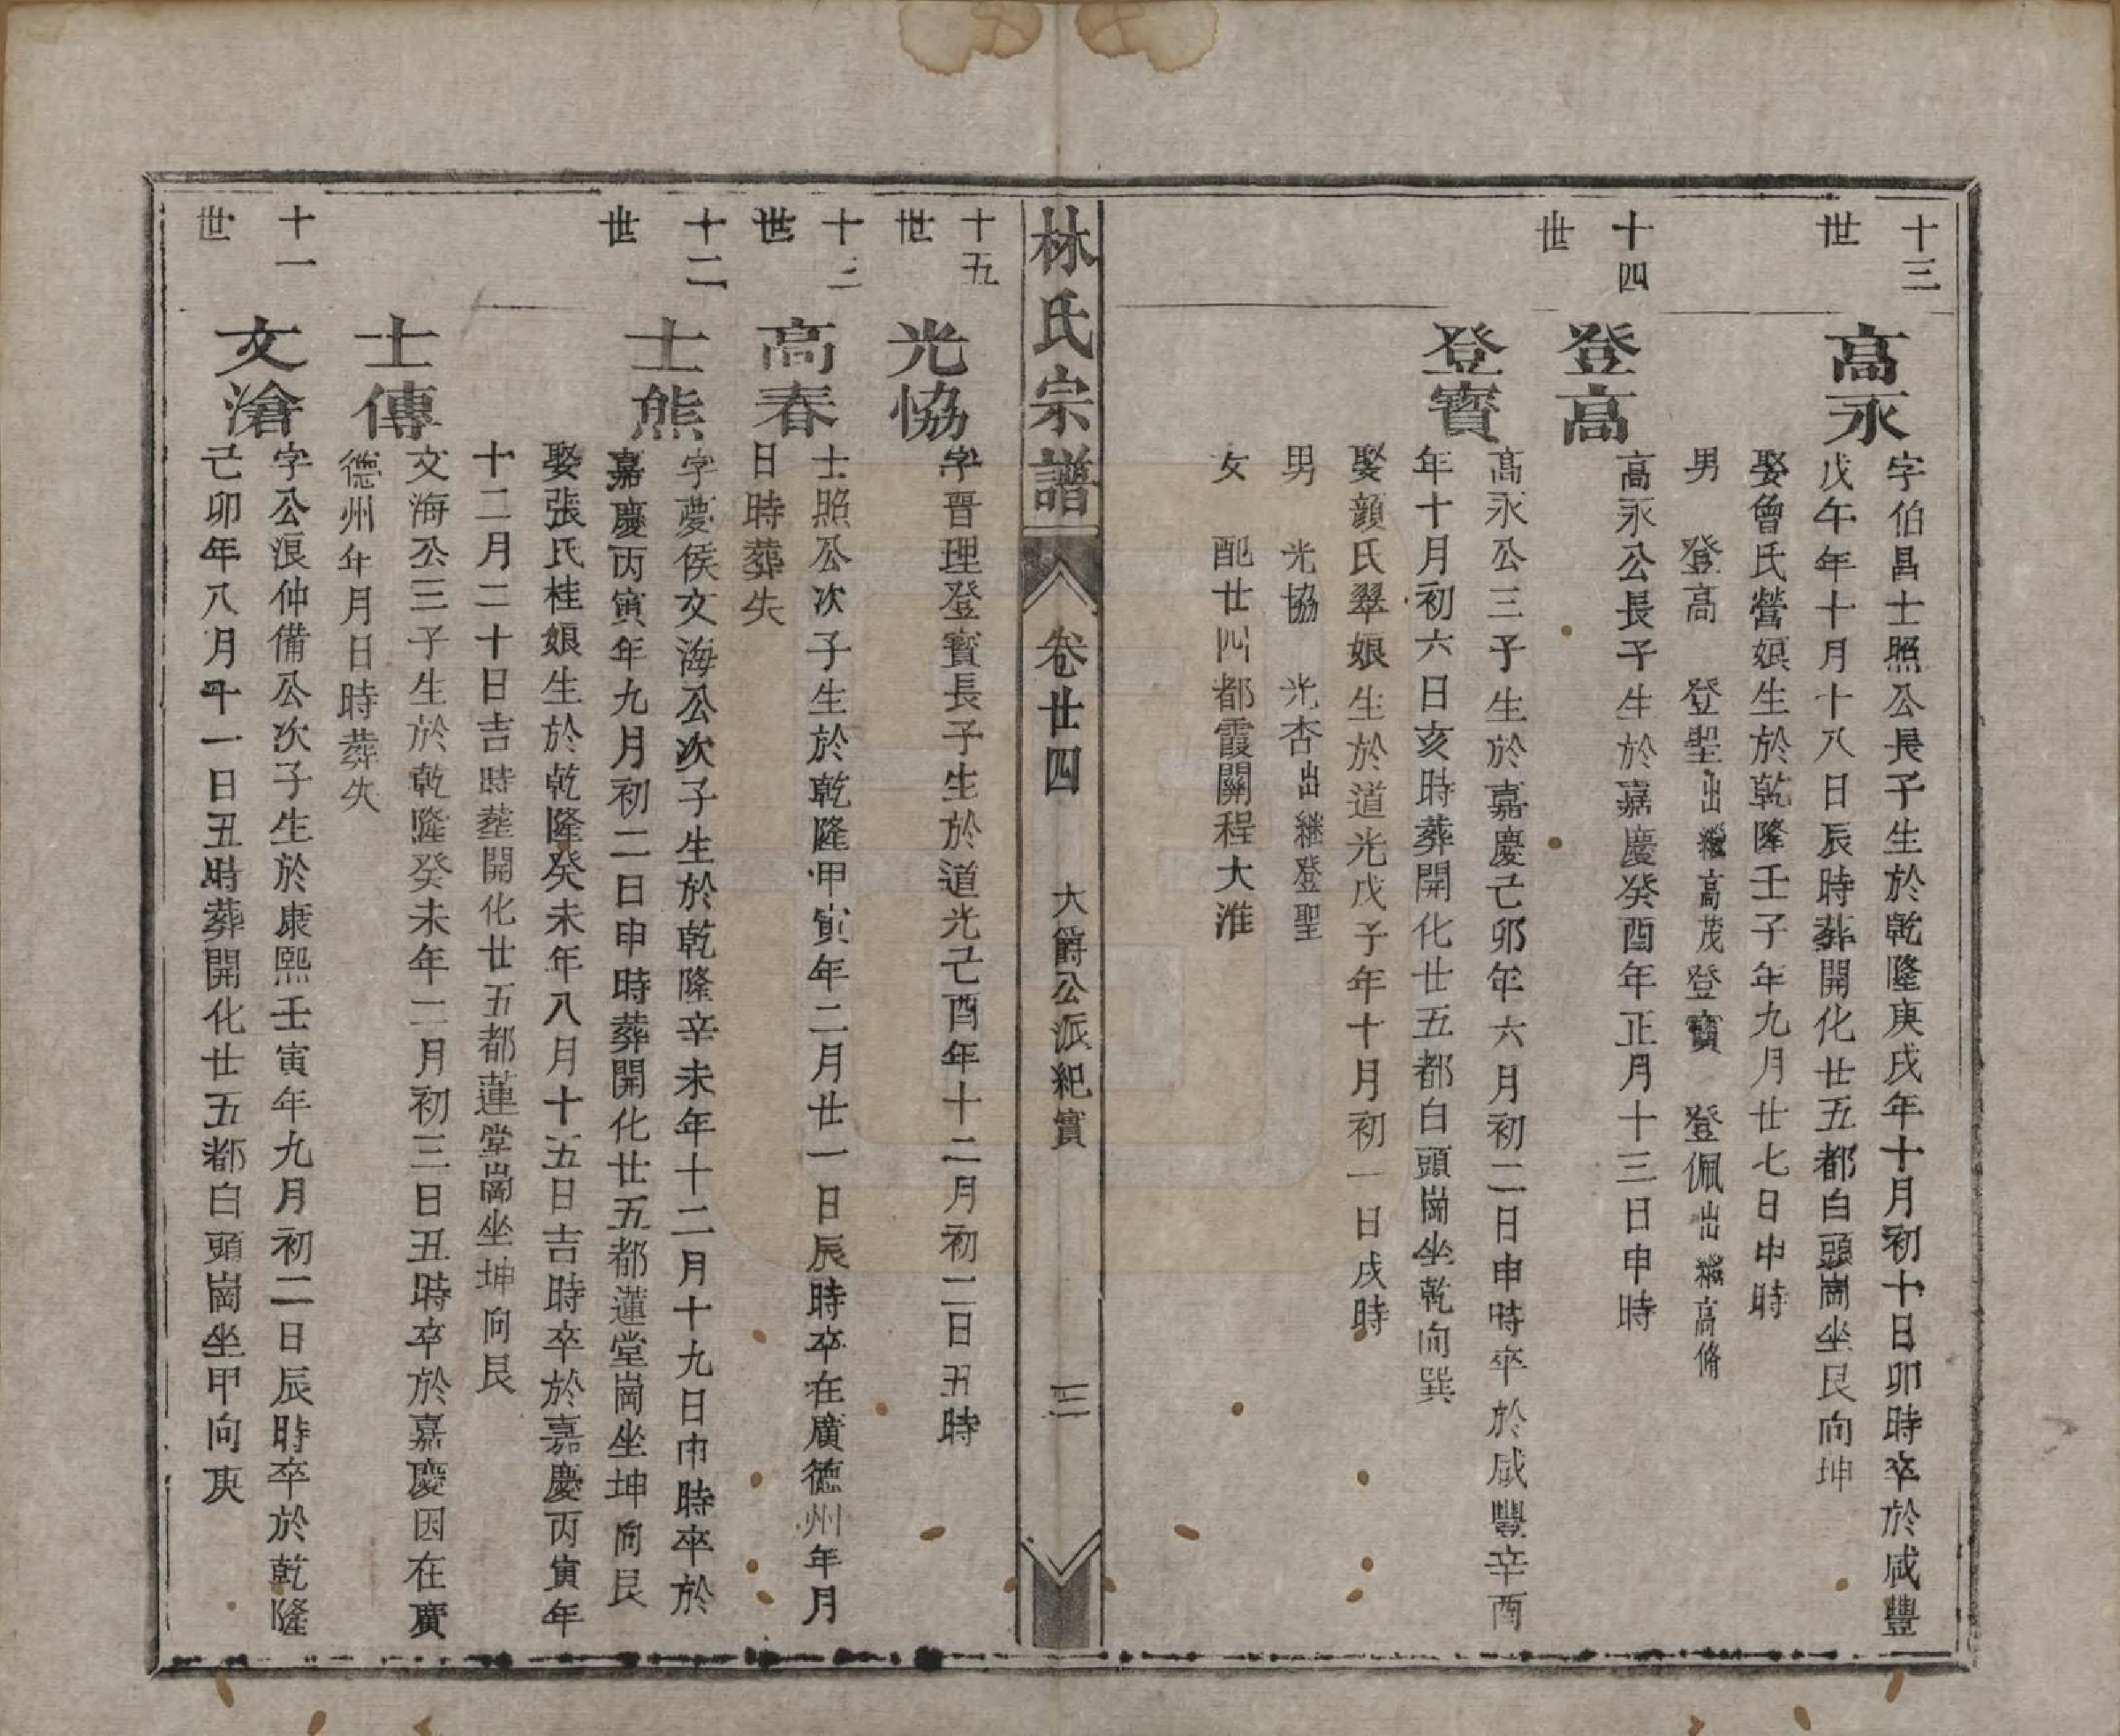 十三世
高永
字伯昌士照公長子生於乾隆庚戌年十月初十日卯時卒於咸豐
戊午年十月十八日辰時葬開化廿五都白頭崗坐艮向坤
娶曾氏營娘生於乾隆壬子年九月廿七日申時
男 登高 登聖出繼高茂 登寶 登佩出繼高脩
十四世
登高
高永公長子生於嘉慶癸酉年正月十三日申時
登寶
高永公三子生於嘉慶己卯年六月初二日申時卒於咸豐辛酉
年十月初六日亥時葬開化廿五都白頭崗坐乾向巽
娶顔氏翠娘生於道光戊子年十月初一日戌時
男 光協 光杏出継登聖
女 配廿四都霞關程大淮
林氏宗譜 卷廿四 大爵公派紀實 三
十五世
光協
字晋理登寶長子生於道光己酉年十二月初二日丑時
十三世
高春
士照公次子生於乾隆甲寅年二月廿一日辰時卒在廣德州年月
日時葬失
十二世
士熊
字夢侯文海公次子生於乾隆辛未年十二月十九日巾時卒於
嘉慶丙寅年九月初二日申時葬開化廿五都蓮堂崗坐坤向艮
娶張氏桂娘生於乾隆癸未年八月十五日吉時卒於嘉慶丙寅年
十二月二十日吉時塟開化廿五都蓮堂崗坐坤向艮
士傳
文海公三子生於乾隆癸未年二月初三日丑時卒於嘉慶因在廣
德州年月日時葬失
十一世
文滄
字公浪仲備公次子生於康熙壬寅年九月初二日辰時卒於乾隆
己卯年八月十一日丑時葬開化廿五都白頭崗坐甲向庚